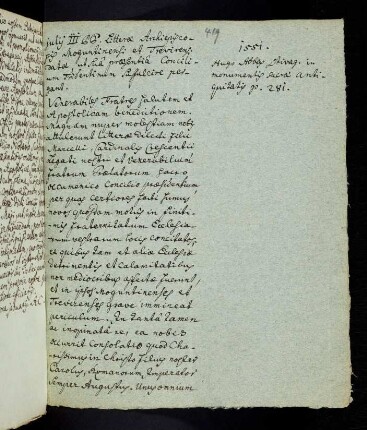 419
Julij III P.P. Litteræ Archiepisco-
pis Moguntinensi et Trevirensi
datæ ut sua præsentia Concili-
um Tridentinum fulcire per-
gant.
Venerabiles Fratres Salutem et
Apostolicam benedictionem.
Magnam nuper molestiam nobis
attulerunt litteræ dilecti filii
Marcelli Cardinalis Crescentii
legati nostri et Venerabilium
fratrum Prælatorum sacro
oecumenico Concilio præsidentium
per quas certiores facti fuimus
novos quosdam motus in finiti-
mis fraternitatum Ecclesia-
rum vestrarum locis concitatos,
e quibus tam et aliæ Ecclesiæ
detrimentis et calamitatibus
non mediocribus affectæ fuerint,
et in ipsos Moguntinenses et
Trevirenses grave immineat
periculum. In tanta tamen
ac inopinata re, ea nobis
occurrit consolatio quod Cha-
rissimus in Christo filius noster
Carolus, Romanorum Imperator
semper Augustus, Unus omnium
1551.
Hugo Abbas Stivag. in
monumentis sacræ anti-
quitatis p. 281.